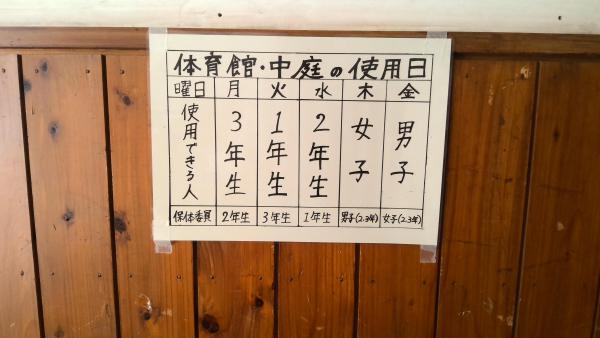 体育館・中庭の使用日
曜日 月 火 水 木 金
使用できる人 3年生 1年生 2年生 女子 男子
保体委員 2年生 3年生 1年生 男子(2.3年) 女子(2.3年)